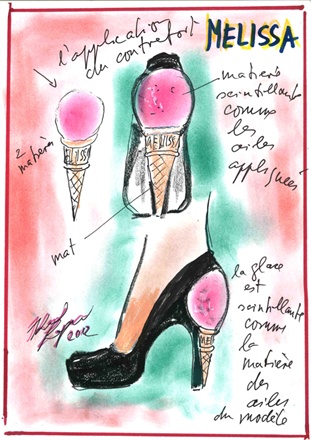 l'application
du contrefort
MELISSA
matière
scintillante
comme
les
ailes
appliquées
2
matières
MELISS
MELISS
mat
la glace
est
scintillante
comme
la
matière
des
ailes
du modèle
ME
2012